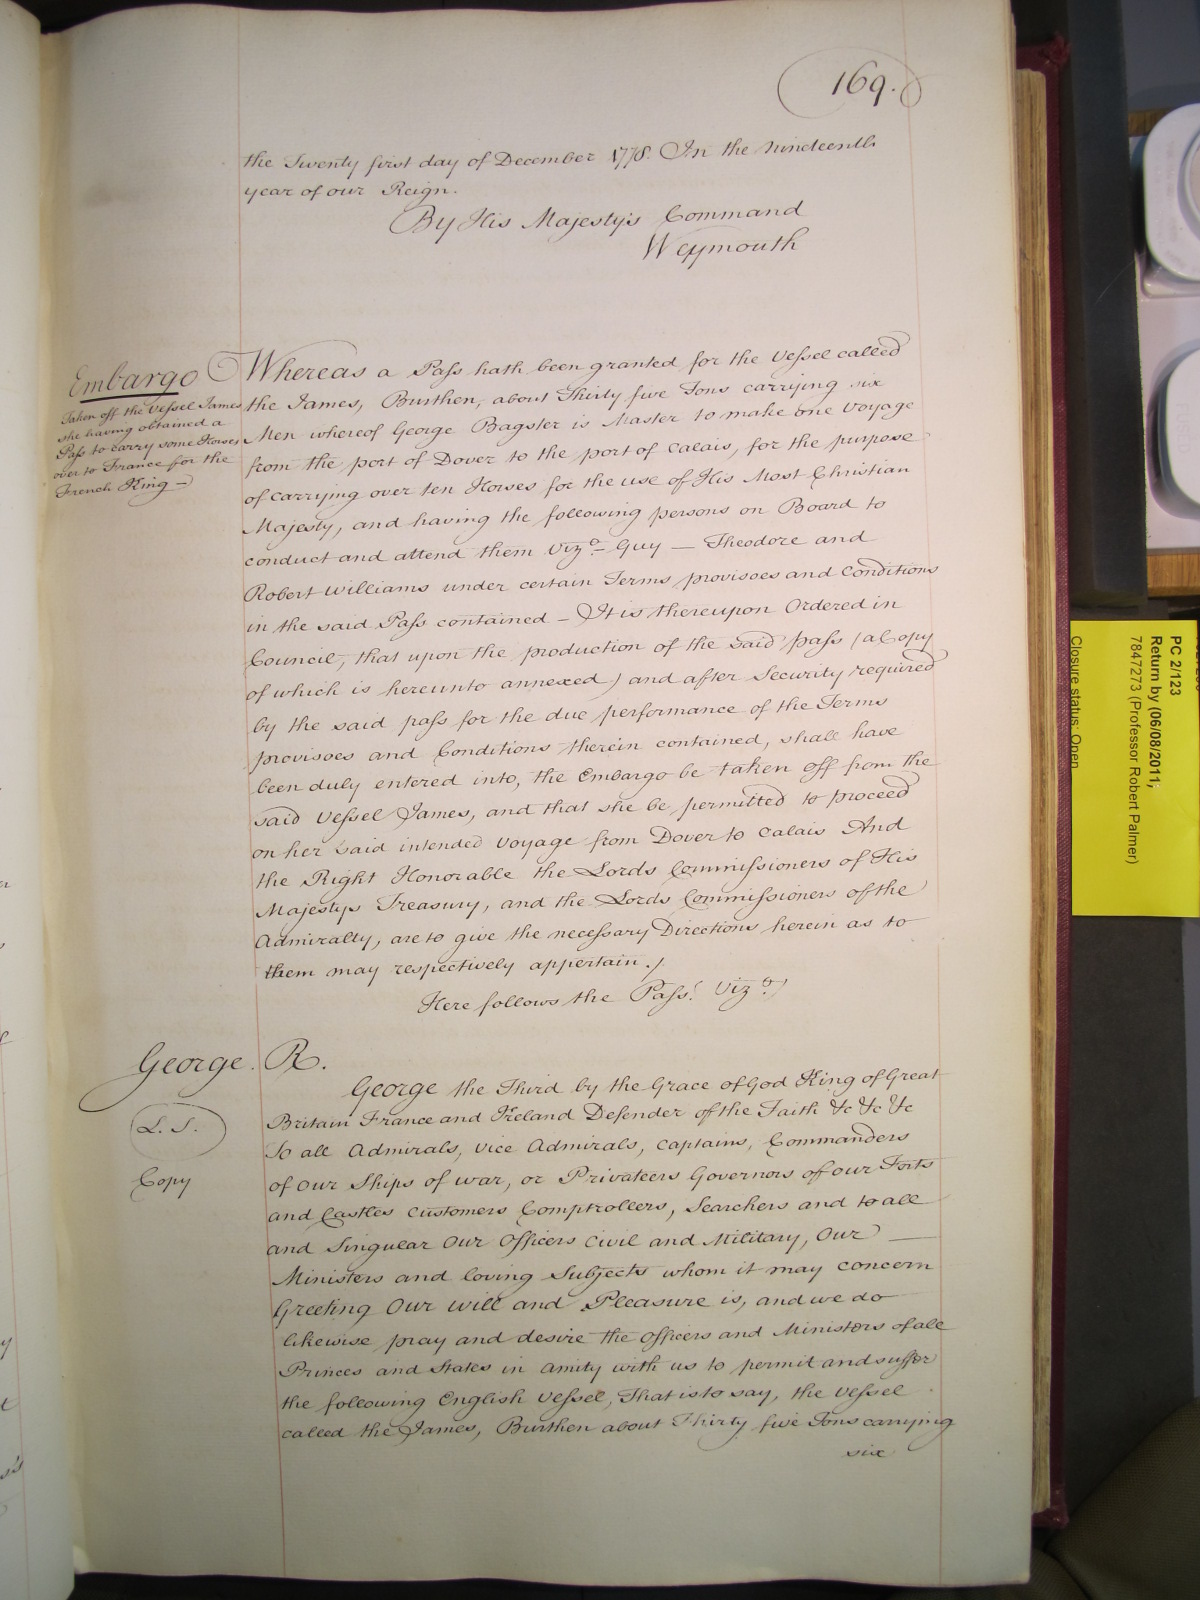 169.
the Twenty first day of December 1778. In the nineteenth
year of our Reign.
By His Majesty's Command
Weymouth
Embargo
Taken off the Vessel James
she having obtained a
Pass to carry some Horses
over to France for the
French King—
Whereas a Pass hath been granted for the Vessel called
the James, Burthen, about Thirty five Tons carrying six
Men whereof George Bagster is Master to make one Voyage
from the port of Dover to the port of Calais, for the purpose
of carrying over ten Horses for the use of His Most Christian
Majesty, and having the following persons on Board to
conduct and attend them Vizt. Guy — Theodore and
Robert Williams under certain Terms provisoes and Conditions
in the said Pass contained — It is thereupon Ordered in
Council, that upon the production of the said pass (a Copy
of which is hereunto annexed) and after Security required
by the said pass for the due performance of the Terms
provisoes and Conditions therein contained, shall have
been duly entered into, the Embargo be taken off from the
said Vessel James, and that she be permitted to proceed
on her said intended Voyage from Dover to Calais And
the Right Honorable the Lords Commissioners of His
Majestys Treasury, and the Lords Commissioners of the
Admiralty, are to give the necessary Directions herein as to
them may respectively appertain./
Here follows the Pass. Vizt.
George R.
L.S.
Copy
George the Third by the Grace of God King of Great
Britain France and Ireland Defender of the Faith &c &c &c
To all Admirals, Vice Admirals, Captains, Commanders
of our Ships of war, or Privateers Governors of our Forts
and Castles Customers Comptrollers, Searchers and to all
and Singular Our Officers Civil and Military, Our —
Ministers and loving Subjects whom it may concern
Greeting Our will and Pleasure is, and we do
likewise pray and desire the Officers and Ministers of all
Princes and States in Amity with us to permit and suffer
the following English Vessel, That is to say, the Vessel
called the James, Burthen about Thirty five Tons carrying
six
PC 2/123
Return by (06/08/2011;
7847273 (Professor Robert Palmer)
Closure status: Open